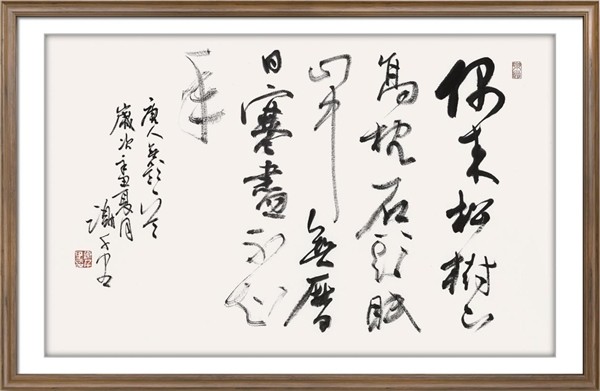 偶来松樹下
高枕石頭眠
山中無曆
日寒盡不知
年
唐人
歲次夏月
謝